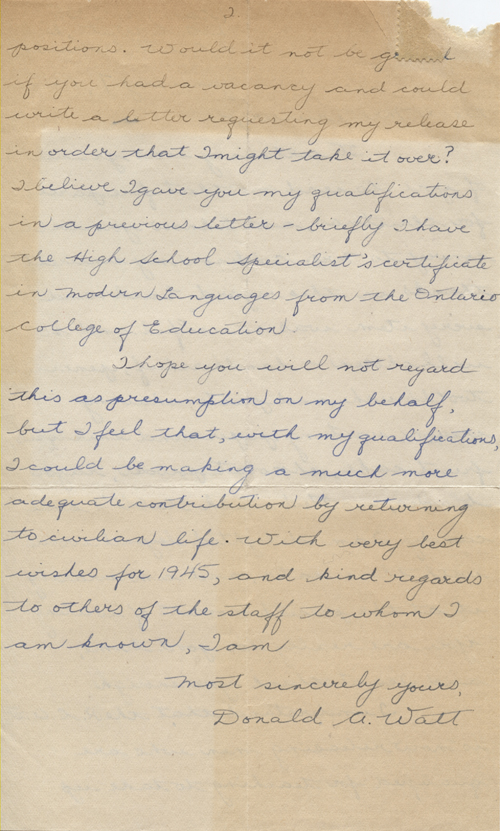 2.
positions. Would it not be
if you had a vacancy and could
write a letter requesting my release
in order that I might take it over?
I believe I gave you my qualifications
in a previous letter – briefly I have
the High School Specialist's certificate
in Modern Languages from the Ontario
College of Education.
I hope you will not regard
this as presumption on my behalf,
but I feel that, with my qualifications,
I could be making a much more
adequate contribution by returning
to civilian life. With very best
wishes for 1945, and kind regards
to others of the staff to whom I
am known, I am
Most sincerely yours,
Donald A. Watt